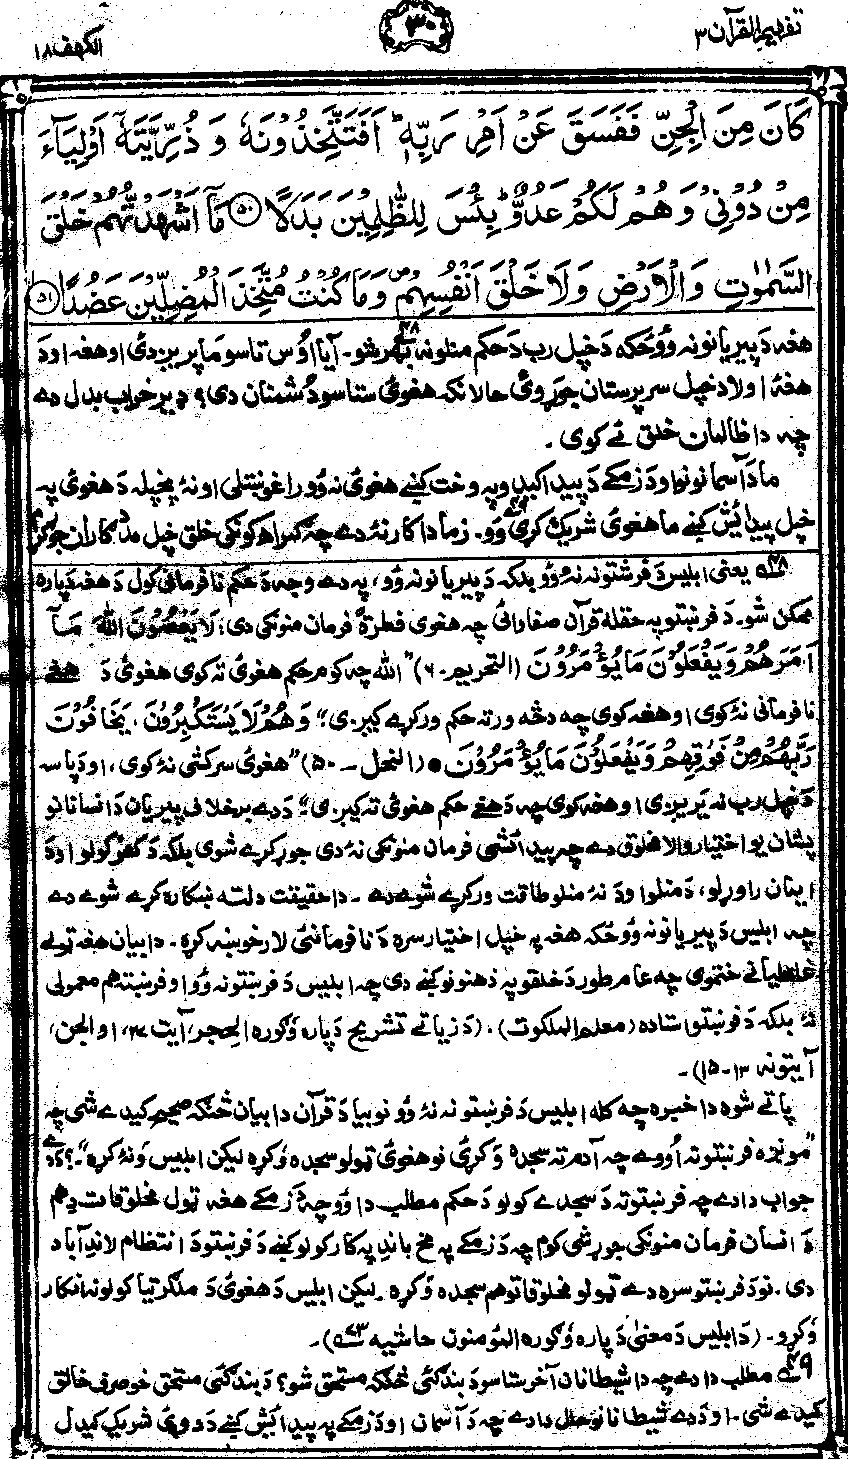 تفہیم القرآن ۳
۳۰
الکهف ۱۸
كَانَ مِنَ الْجِنِّ فَفَسَقَ عَنْ اَمْرِ رَبِّهٖ ؕ اَفَتَتَّخِذُوْنَهٗ وَ ذُرِّيَّتَهٗٓ اَوْلِيَآءَ
مِنْ دُوْنِيْ وَ هُمْ لَكُمْ عَدُوٌّ ؕ بِئْسَ لِلظّٰلِمِيْنَ بَدَلًا ﴿۵۰﴾ مَاۤ اَشْهَدْتُّهُمْ خَلْقَ
السَّمٰوٰتِ وَ الْاَرْضِ وَ لَا خَلْقَ اَنْفُسِهِمْ ۪ وَ مَا كُنْتُ مُتَّخِذَ الْمُضِلِّيْنَ عَضُدًا ﴿۵۱﴾
هغه د پیریانو نه وؤ ځکه د خپل رب د حکم منلو نه بهر شو۔ ۴۸ آیا اوس تاسو ما پریږدئ او هغه او د
هغهٔ اولاد خپل سرپرستان جوړوئ حالانکه هغوئ ستاسو دشمنان دی؟ ډیر خراب بدل دے
چه دا ظالمان خلق ئے کوی ۔
ما د آسمانونو او د زمکے د پیدا کیدو په وخت کښے هغوئ نه وو را غوښتلی او نهٔ پخپله د هغوئ په
خپل پیدائش کښے ما هغوئ شریک کړی ۴۹ وو۔ زما دا کار نهٔ دے چه ګمراه کونکی خلق خپل مددګاران جوړ کړم
۴۸ یعنی ابلیس د فرښتو نه نهٔ وؤ بلکه د پیریانو نه وؤ، په دے وجه د حکم نافرمانی کول د هغه دپاره
ممکن شو۔ د فرښتو په حقله قرآن صفا وائی چه هغوی فطرةً فرمان منونکی دی: لَا يَعْصُوْنَ اللّٰهَ مَآ
اَمَرَهُمْ وَيَفْعَلُوْنَ مَا يُؤْمَرُوْنَ (التحریم-۶) "الله چه کوم حکم هغوئ ته کوی هغوئ د هغے
نافرمانی نهٔ کوی او هغه کوی چه دڅه ورته حکم ورکړے کیږی" وَهُمْ لَا يَسْتَكْبِرُوْنَ، يَخَافُوْنَ
رَبَّهُمْ مِنْ فَوْقِهِمْ وَيَفْعَلُوْنَ مَا يُؤْمَرُوْنَ ● (النحل ـ ۵۰) "هغوئ سرکشی نهٔ کوی، او د پاسه
د خپل رب نه یریږی او هغه کوی چه د هغے حکم هغوئ ته کیږی" د دے برخلاف پیریان د انسانانو
پشان یو اختیار والا مخلوق دے چه پیدائشی فرمان منونکی نهٔ دی جوړ کړے شوی بلکه د کفر کولو او د
ایمان راوړلو، د منلو او د نهٔ منلو طاقت ورکړے شوے دے ۔ دا حقیقت دلته ښکاره کړے شوے دے
چه ابلیس د پیریانو نه وؤ ځکه هغه په خپل اختیار سره د نافرمانئ لار خوښه کړه ۔ دا بیان هغه ټولے
غلطیانے ختموی چه عام طور د خلقو په ذهنونو کښے دی چه ابلیس د فرښتو نه وؤ او فرښته هم معمولی
نهٔ بلکه د فرښتو استاده (معلم الملکوت) . (د زیاتے تشریح دپاره وګوره الحجر، آیت ۲۷، او الجن،
آیتونه ۱۳-۱۵) ۔
پاتے شوه دا خبره چه کله ابلیس د فرښتو نه نهٔ وؤ نو بیا د قرآن دا بیان څنګه صحیح کیدے شی چه
"مونږه فرښتو ته اُووے چه آدم ته سجده وکړئ نو هغوئ ټولو سجده وکړه لیکن ابلیس ونهٔ کړه"؟ د دے
جواب دا دے چه فرښتو ته د سجدے کولو د حکم مطلب دا وؤ چه د زمکے هغه ټول مخلوقات دِ هم
د انسان فرمان منونکی جوړ شی کوم چه د زمکے په مخ باندے په کار کولو کښے د فرښتو د انتظام لاندِ آباد
دی. نو د فرښتو سره دے ټولو مخلوقاتو هم سجده وکړه ۔ لیکن ابلیس د هغوئ د ملګرتیا کولو نه انکار
وکړو ۔ (د ابلیس د معنیٰ دپاره وګوره المؤمنون حاشیه ۷۳) ۔
۴۹ مطلب دا دے چه دا شیطانان آخر ستاسو د بندګئ څنګه مستحق شو؟ د بندګئ مستحق خو صرف خالق
کیدے شی ۔ او د دے شیطانانو حال دا دے چه د آسمان او د زمکے په پیدائش کښے د دوئ شریک کیدل